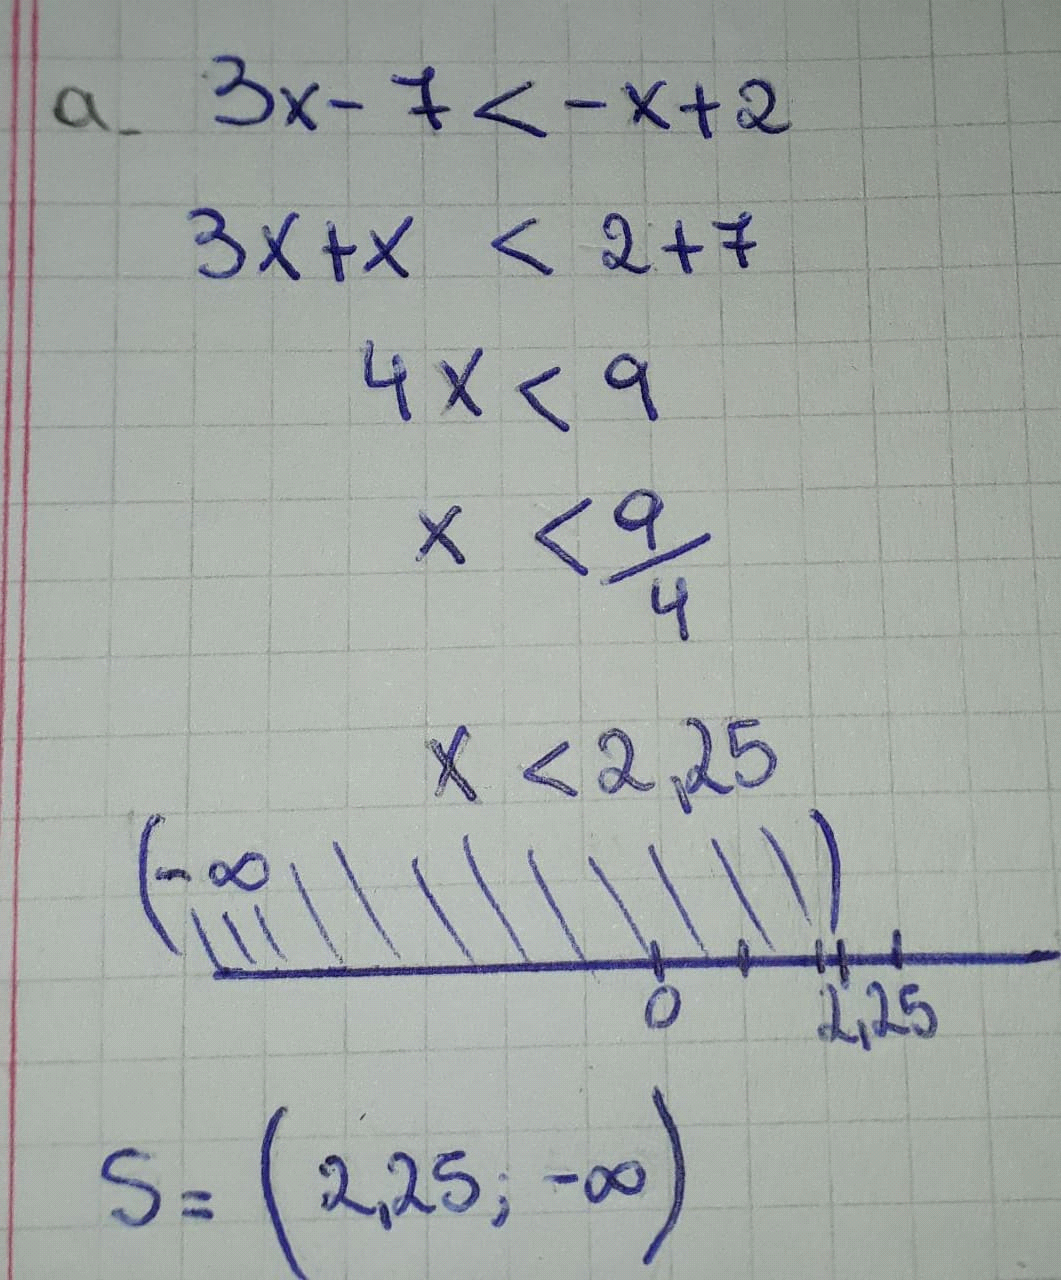 a- 3x-7<-x+2
3x+x < 2+7
4x<9
x <9/4
x <2,25
(-∞ )
0 2,25
S= (2,25; -∞)